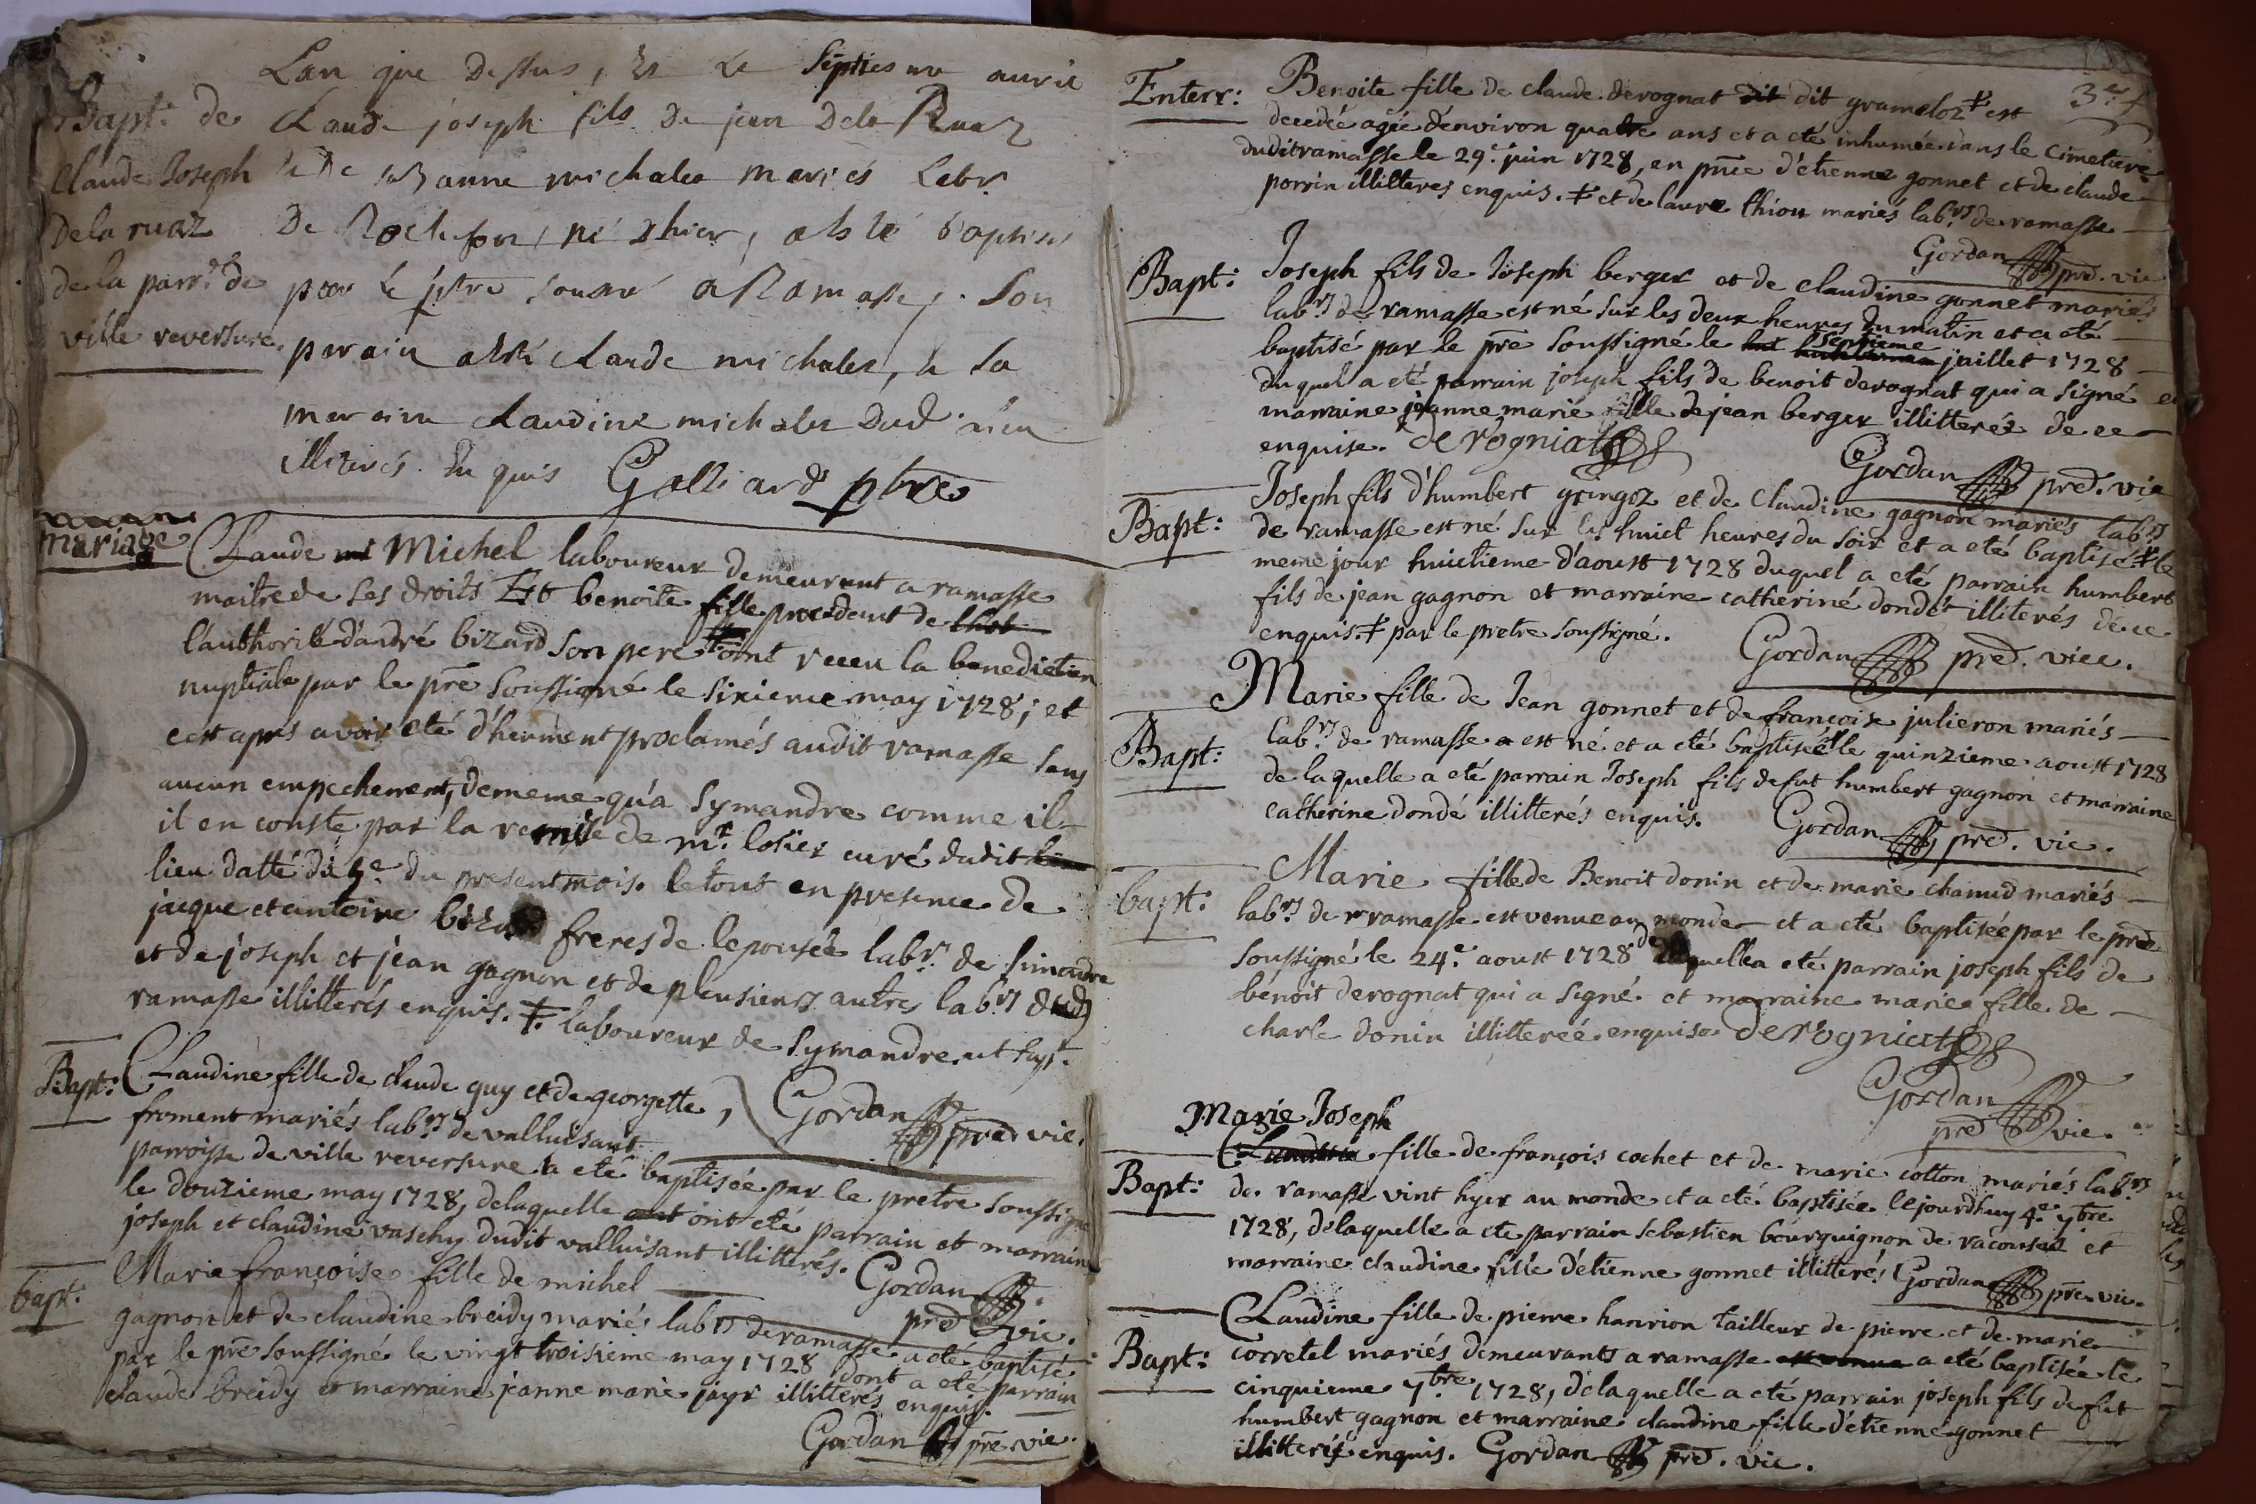 Lan que Dessus, Et Le Septiesme avril
Bapt: de Claude joseph fils De jean Dela Ruaz
Claude Joseph et De suzanne michalet mariés Labr.
Dela ruaz De Rochefort, né d'hier, a esté Baptisé
de la parr.e de par Le ptre sousné a Ramasse, Son
ville reversure. parain a esté Claude michalet, & Sa
maraine Claudine michalet Dud. lieu
illiterés Enquis Galliard ptre
mariage
Claude Michel laboureur demeurant a ramasse
maitre de ses droits Est benoite fille procedent de
l'authorité d'andré bizard son pere ‡ ont receu la benediction
nuptiale par le pre soussigné le sixieme may 1728; et
c'est apres avoir eté d'hüement proclamés audit ramasse sans
aucun empechement, de meme qu'a Symandre comme il
il en conste par la remise de mr. losier curé dudit
lieu datté du 5e du present mois. le tout en presence de
jacque et antoine bizard freres de l'epousée labrs. de simandre
et de joseph et jean gagnon et de plusieurs autres labrs dud
ramasse illitterés enquis. ‡. laboureur de Symandre. ut supr.
Gordan pre. vic.
Bapt: Claudine fille de claude guy et de georgette
froment mariés labrs de valluisant
parroisse de ville reversure a eté baptisée par le pretre soussigné
le douzieme may 1728, de laquelle ont eté parrain et marraine
joseph et claudine vaschy dudit valluisant illitterés. Gordan
pre vic.
bapt: Marie françoise fille de michel
gagnon et de claudine breidy mariés labrs de ramasse a eté baptisé
par le pre soussigné le vingt troisieme may 1728 dont a eté parrain
claude breidy et marraine jeanne marie jayr illitterés enquis.
Gordan pre. vic.
3e f
Enterr: Benoite fille de claude derognat dit grameloz ‡ est
decedée agée d'environ quatre ans et a eté inhumée dans le cimetiere
dudit ramasse le 29e juin 1728, en pnce d'etienne gonnet et de claude
porrin illitteres enquis. ‡ et de laure thion mariés labrs de ramasse
Gordan pre. vic
Bapt: Joseph fils de Joseph berger et de claudine gonnet mariés
labrs de ramasse est né sur les deux heures du matin et a eté
baptisé par le pre soussigné le septieme juillet 1728
duquel a eté parrain joseph fils de benoit derognat qui a signé et
marraine jeanne marie fille de jean berger illitterée de ce
enquise. derogniat
Gordan pre. vic
Bapt: Joseph fils d'humbert gringoz et de Claudine gagnon mariés labrs
de ramasse est né sur les huict heures du soir et a eté baptisé ‡ le
meme jour huictieme d'aoust 1728 duquel a eté parrain humbert
fils de jean gagnon et marraine catherine dondé illiterés de ce
enquis. ‡ par le pretre soussigné. Gordan pre. vicc.
Bapt: Marie fille de Jean gonnet et de françoise julieron mariés
labrs de ramasse est né et a eté baptisée le quinzieme aoust 1728
de laquelle a eté parrain Joseph fils de fut humbert gagnon et marraine
catherine dondé illitterés enquis. Gordan pre. vic.
bapt: Marie fille de Benoit donin et de marie chanud mariés
labrs de ramasse est venue au monde et a eté baptisée par le pre
soussigné le 24e aoust 1728 de laquelle a eté parrain joseph fils de
benoit derognat qui a signé et marraine marie fille de
charle donin illitereé enquise derogniat
Gordan
pre vic.
Marie Joseph
Bapt: fille de françois cochet et de marie cotton mariés labrs
de ramasse vint hyer au monde et a eté baptisée lejourdhuy 4e 7bre
1728, de laquelle a eté parrain sebastien bourguignon de raconsal et
marraine claudine fille d'etienne gonnet illitterés Gordan pre. vic.
Bapt: Claudine fille de pierre hanrion tailleur de pierre et de marie
corretel mariés demeurants a ramasse a eté baptisée le
cinquieme 7bre 1728, de laquelle a eté parrain joseph fils de fut
humbert gagnon et marraine claudine fille d'etienne gonnet
illitterés enquis. Gordan pre. vic.